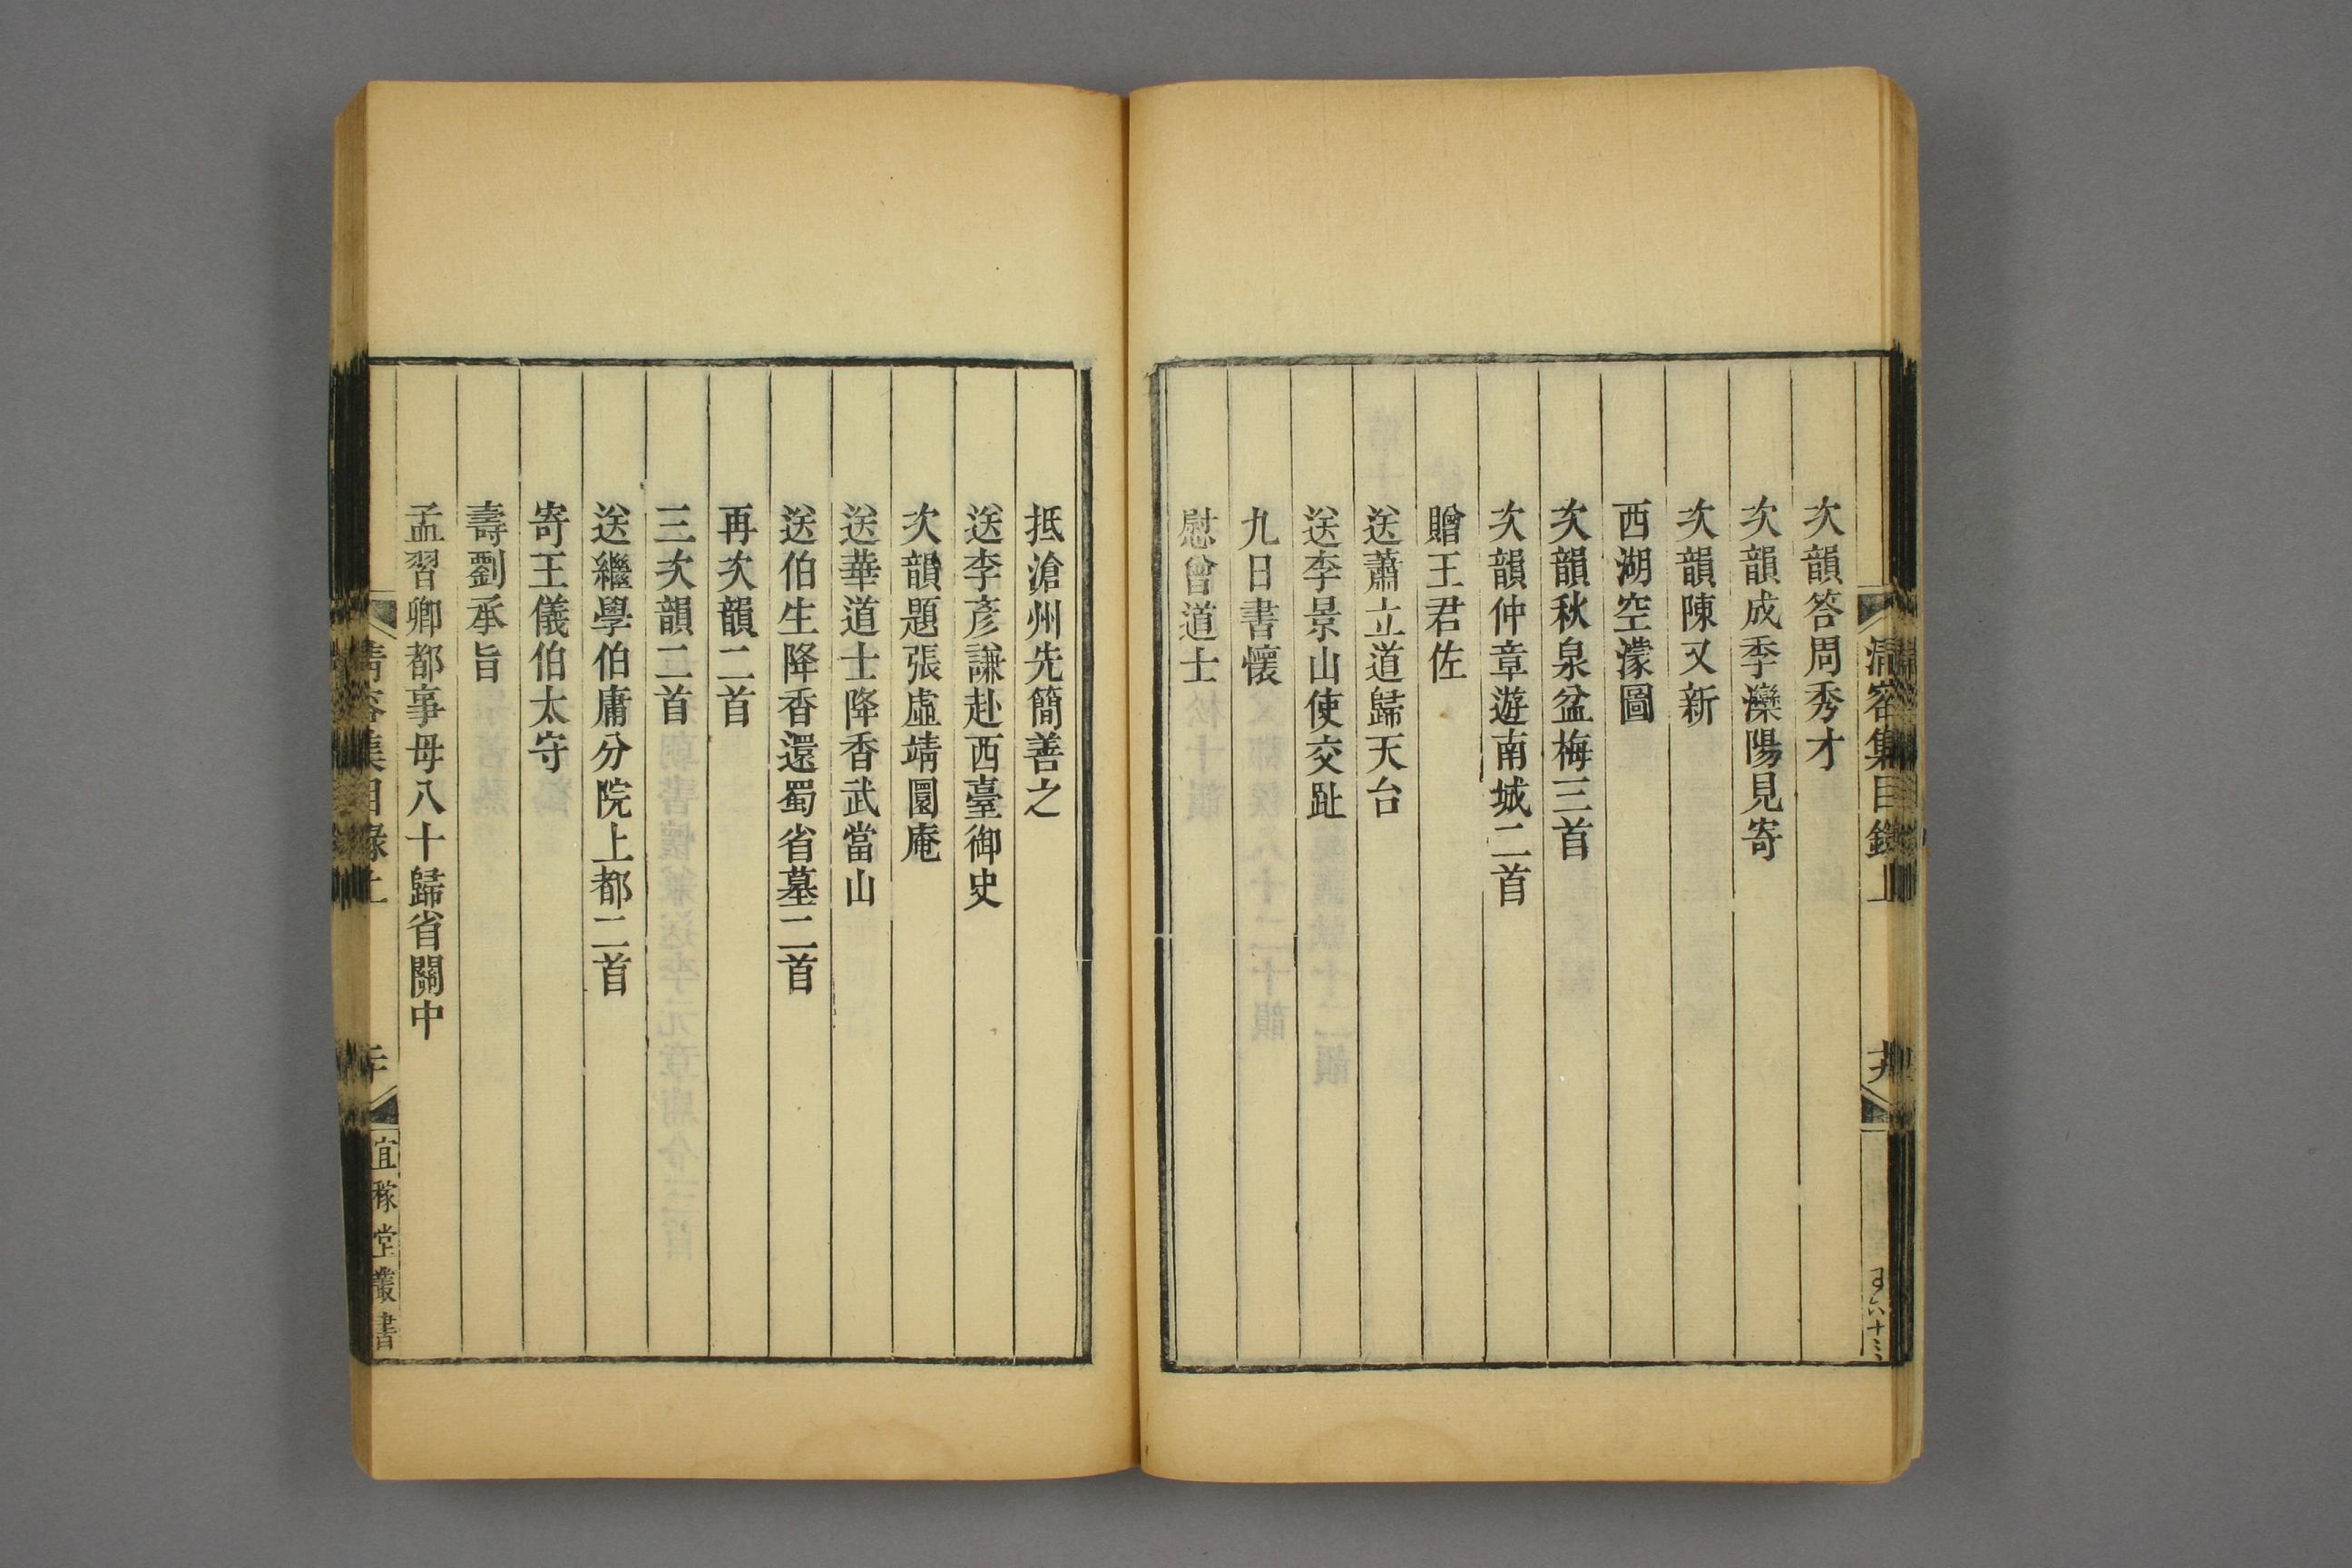 清容集目錄上
次韻答周秀才
次韻成季灤陽見寄
次韻陳又新
西湖空濛圖
次韻秋泉盆梅三首
次韻仲章遊南城二首
贈王君佐
送蕭立道歸天台
送李景山使交趾
九日書懷
慰曾道士
抵滄州先簡善之
送李彥謙赴西臺御史
次韻題張虛靖圜庵
送華道士降香武當山
送伯生降香還蜀省墓二首
再次韻二首
三次韻二首
送繼學伯庸分院上都二首
寄王儀伯太守
壽劉承旨
孟習卿都事母八十歸省關中
清容集目錄上
宜稼堂叢書